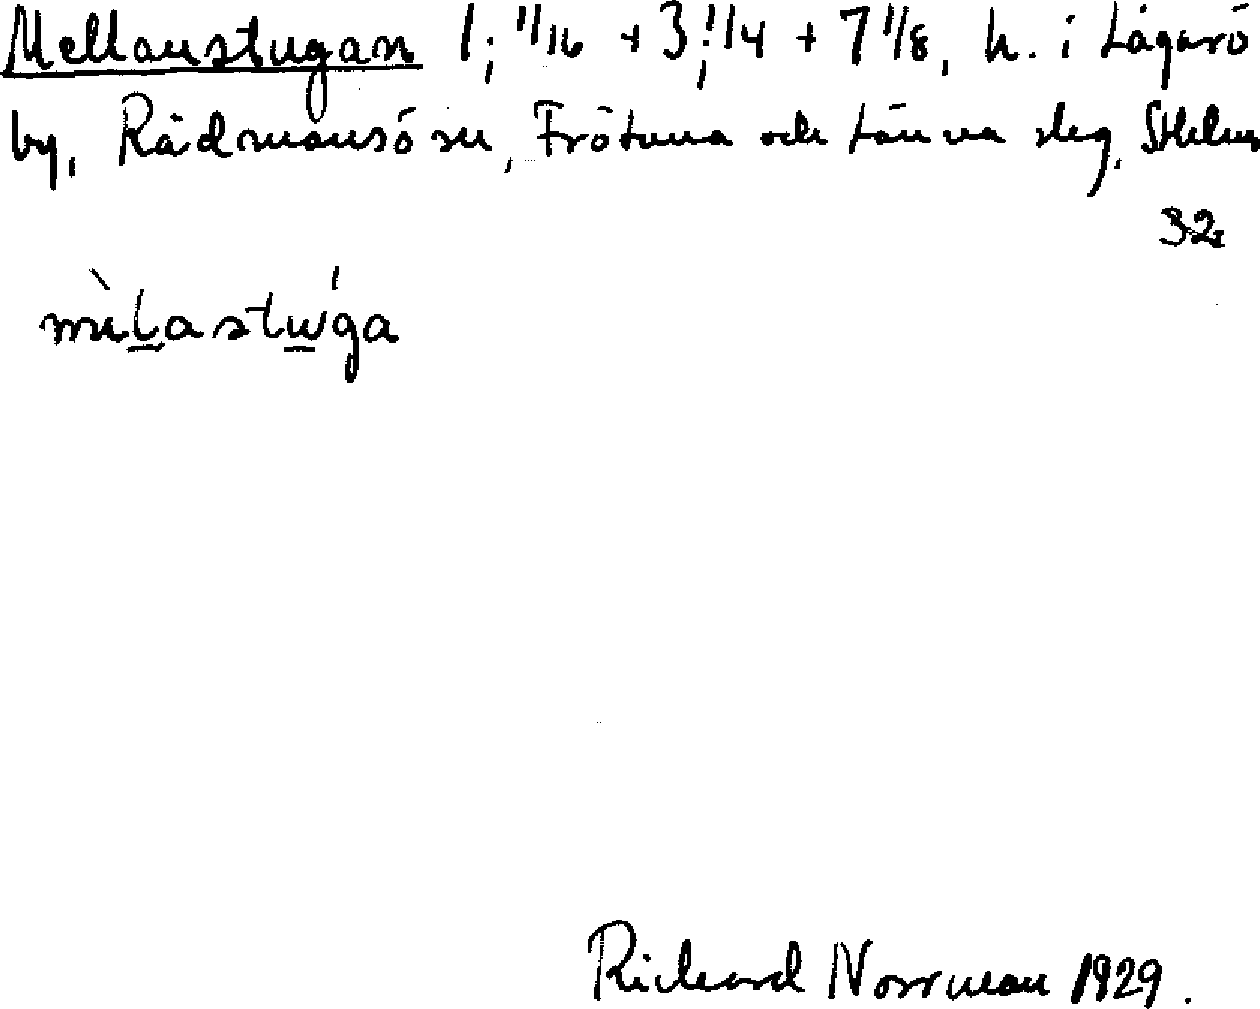 Mellanstugan 1; 1/16 + 3; 1/4 + 7 1/8, h. i Lågarö
by, Rådmansö sn, Frötuna och Länna slag, Sthlms
32.
Richard Norrman 1929.